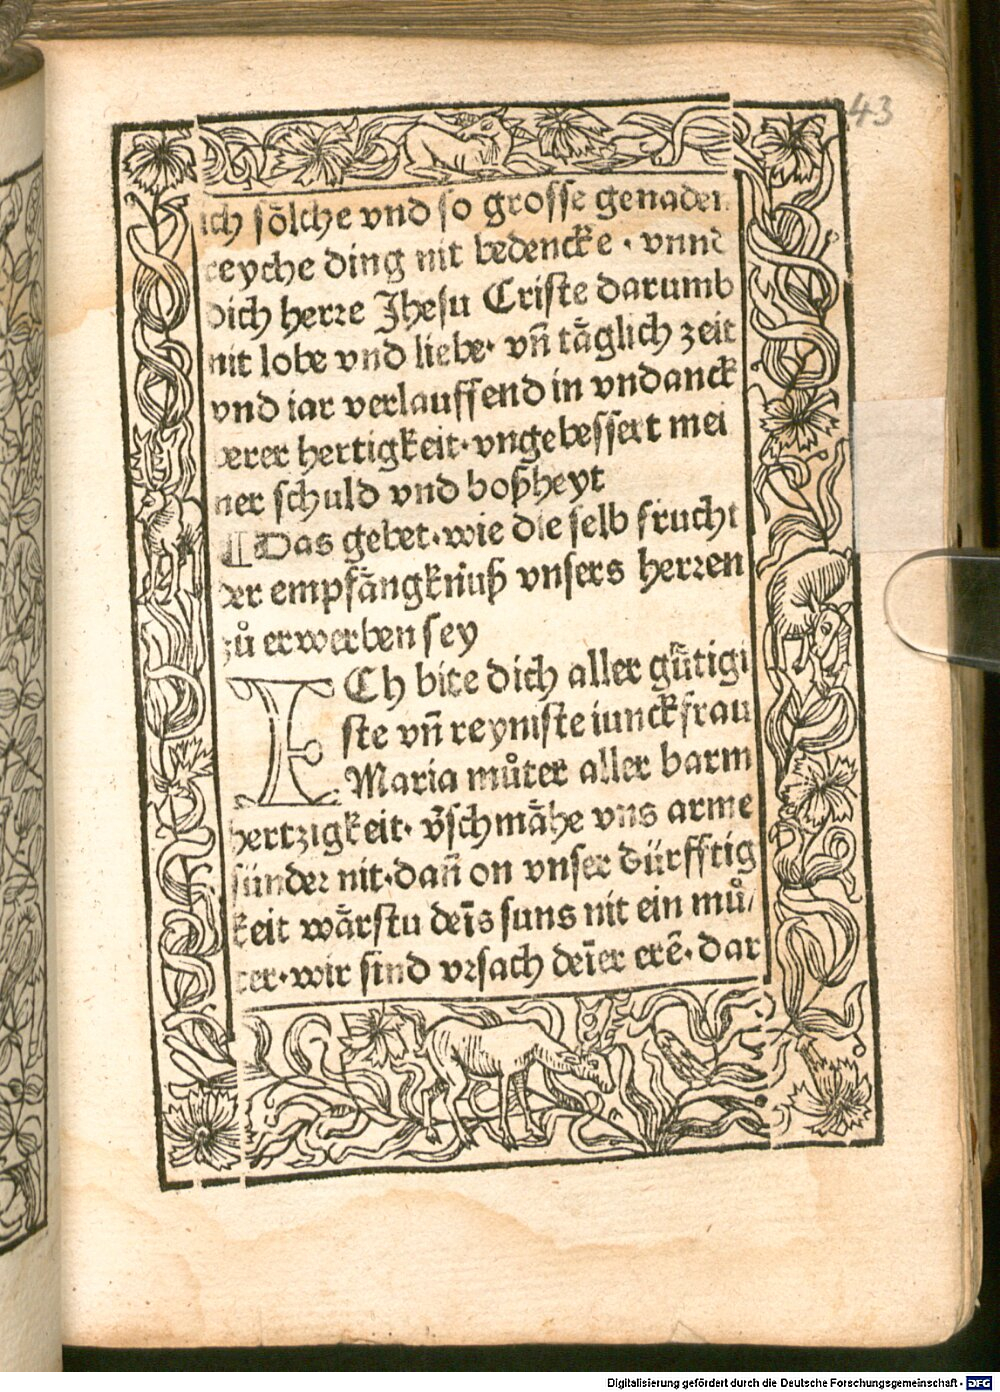 43
ich sölche vnd so grosse genaden
reyche ding nit bedencke · vnnd
dich herre Jhesu Criste darumb
nit lobe vnd liebe· vñ täglich zeit
vnd iar verlauffend in vndanck
berer hertigkeit·vngebessert mei
ner schuld vnd boßheyt
¶Das gebet·wie die selb frucht
der empfängknuß vnsers herren
zů erwerben sey
ICh bite dich aller gütigi
ste vñ reyniste iunckfrau
Maria můter aller barm
hertzigkeit· v̄schmähe vns arme
sünder nit·dañ on vnser dürfftig
keit wärstu deīs suns nit ein mů/
ter·wir sind vrsach deīer erē·dar
Digitalisierung gefördert durch die Deutsche Forschungsgemeinschaft - DFG